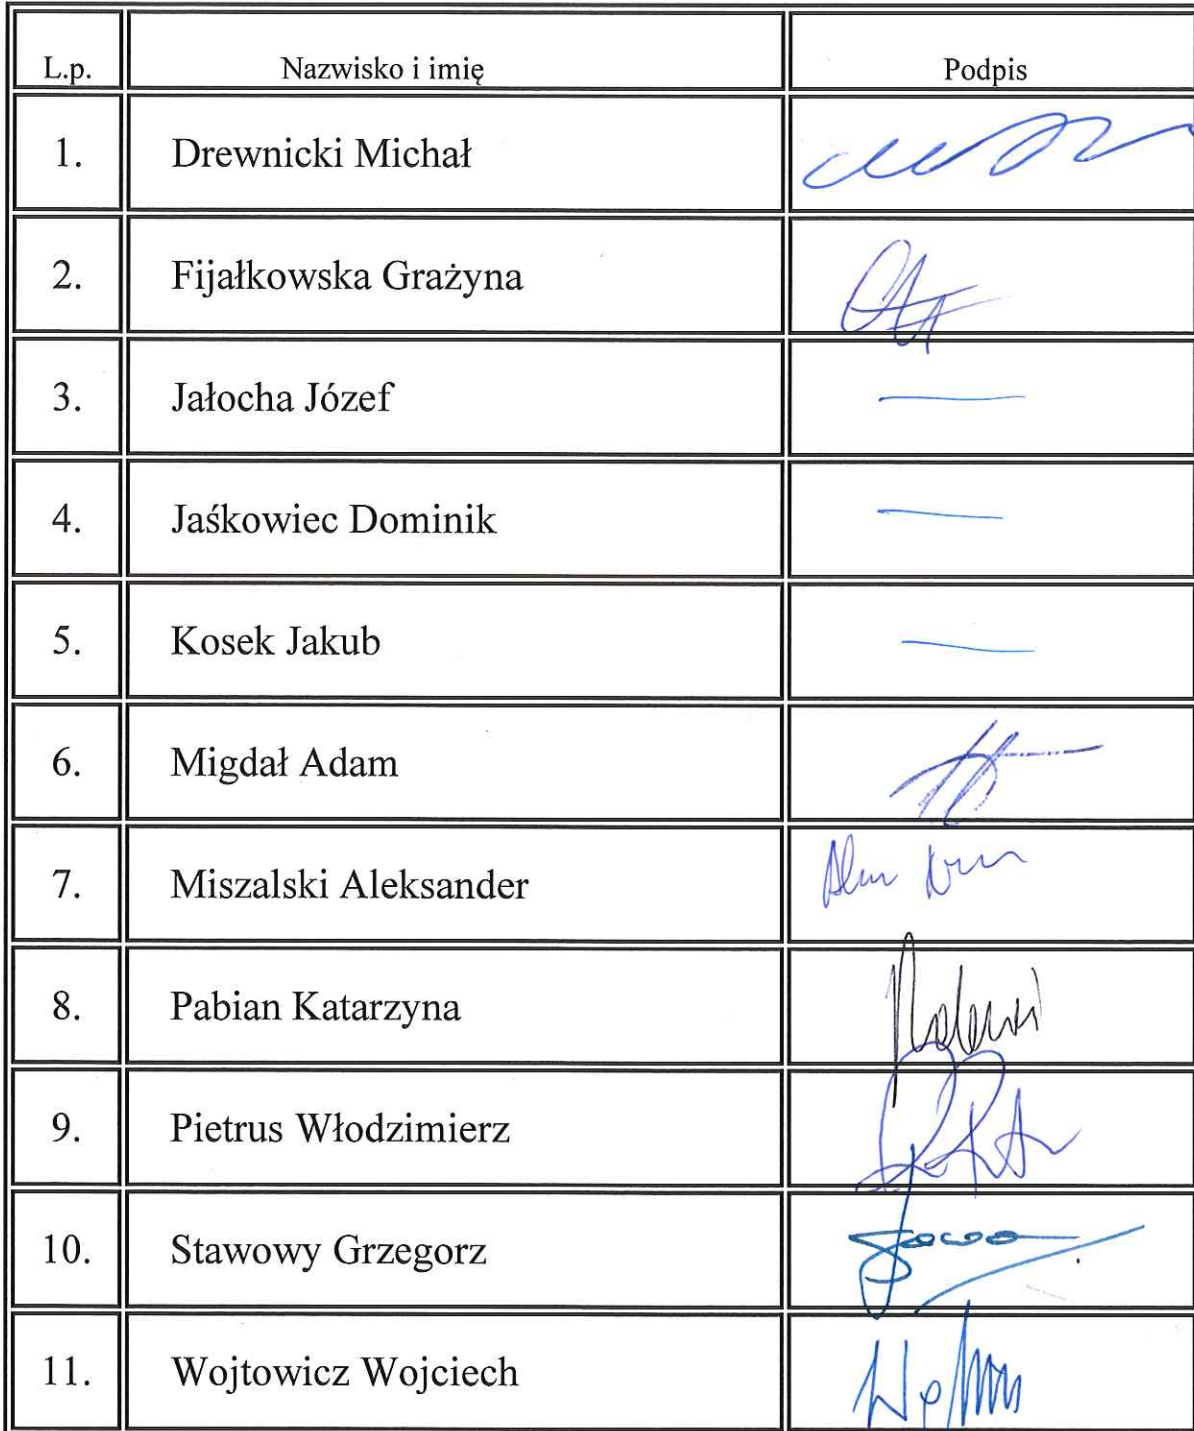 L.p. Nazwisko i imię Podpis
1. Drewnicki Michał
2. Fijałkowska Grażyna
3. Jałocha Józef —
4. Jaśkowiec Dominik —
5. Kosek Jakub —
6. Migdał Adam
7. Miszalski Aleksander
8. Pabian Katarzyna
9. Pietrus Włodzimierz
10. Stawowy Grzegorz
11. Wojtowicz Wojciech